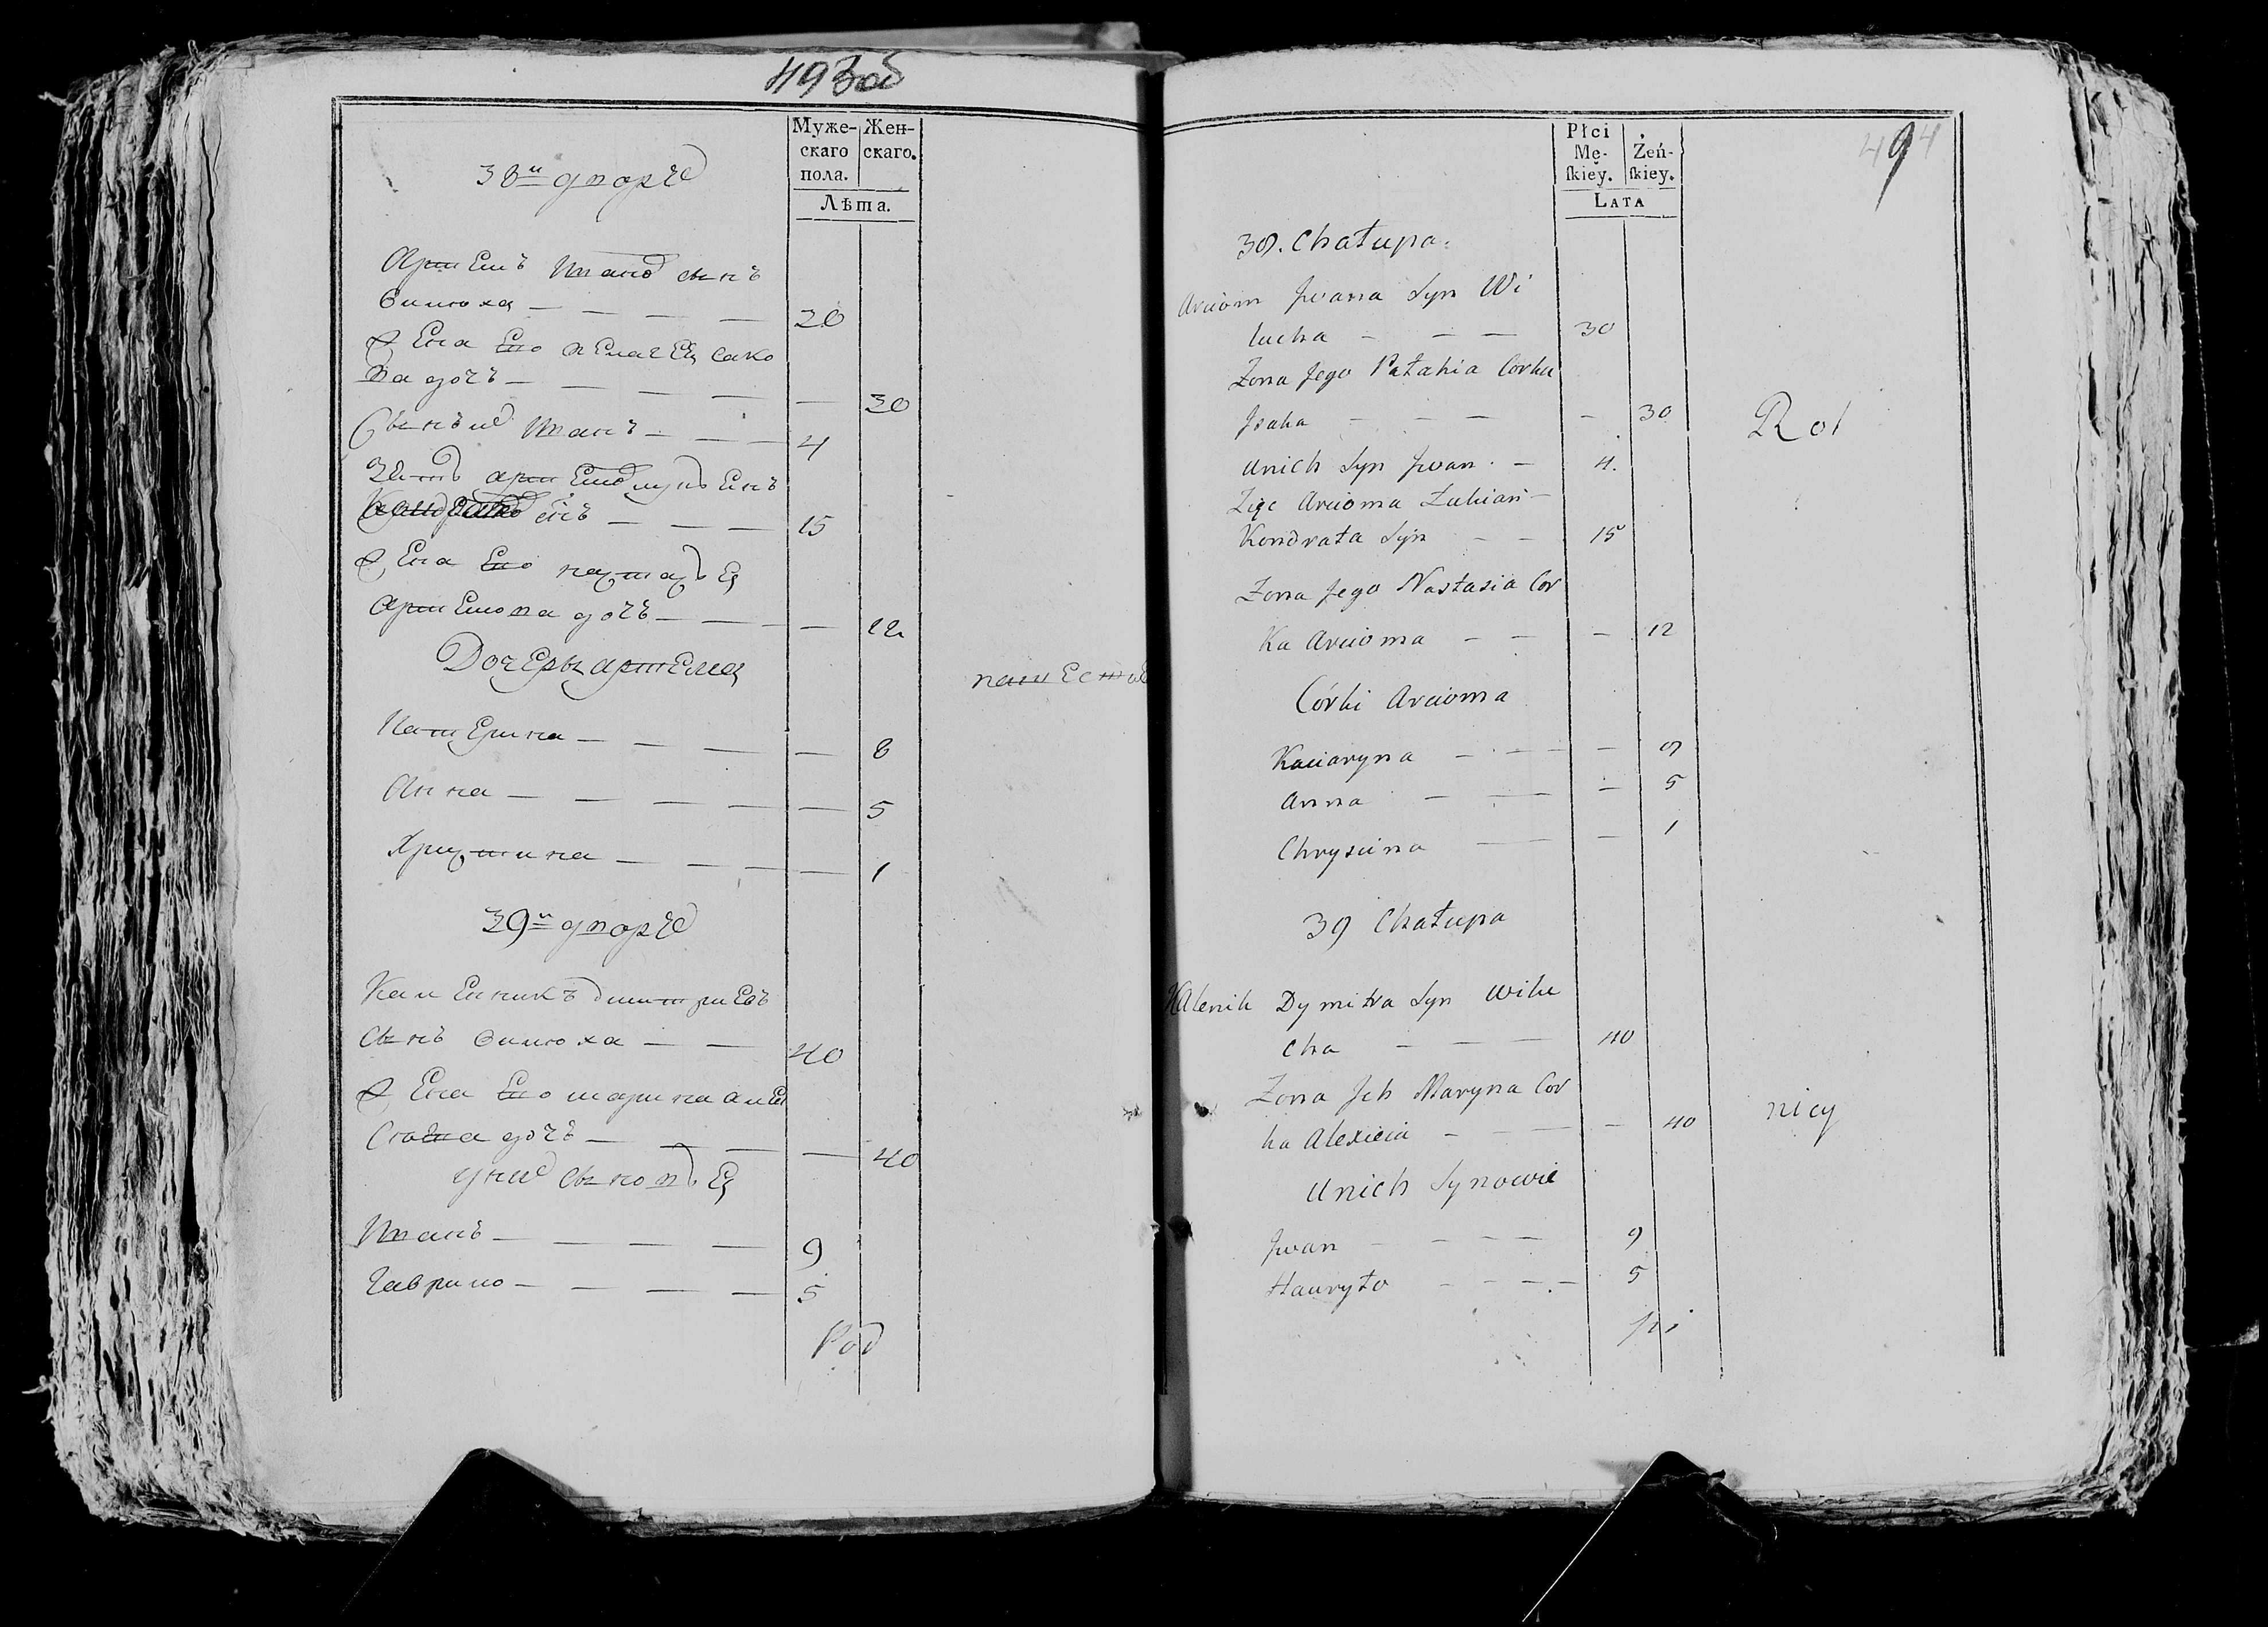 493об
Муже-
скаго
пола.
Жен-
скаго.
Лѣта.
38й дворъ
Артемъ Иванов сынъ
Вилюха — — — — 30
Жена Его Пелагея Сако
ва дочь — — — — — 30
Сынъ их Иванъ — — — 4
Зять Артемов Лукьянъ
Кондратов снъ — — — 15
Жена Его Настасья
Артемова дочь — — — — 12
Дочеры Артема
Катерина — — — — — 8
Анна — — — — — 5
Христина — — — — — 1
39й дворъ
Каленикъ Дмитриевъ
сынъ Вилюха — — 40
Жена Его Марина Алек
сіова дочь — — — — 40
У них сыновья
Иванъ — — — — 9
Гаврило — — — — 5
494
Płci
Mę-
ſkiey.
Żeń-
ſkiey.
LATA
38. Chałupa.
Arciom Jwana Syn Wi
lucha — — — 30
Zona Jego Pałahia Corka
Jsaka — — — — 30
Rol
Unich Syn Jwan. — 4.
Zięc Arcioma Łukian —
Kondrata Syn — — 15
Zona Jego Nastasia Cor
ka Arcioma — — — 12
Córki Arcioma
Kaciaryna — — — — 8
Anna — — — 5
Chryscina — — 1
39 Chałupa
Kalenik Dymitra Syn Wilu
cha — — — 40
Zona Jch Maryna Cor
ka Alexieia — — — — 40
nicy
Unich Synowie
Jwan — — — — 9
Hauryło — — — — 5